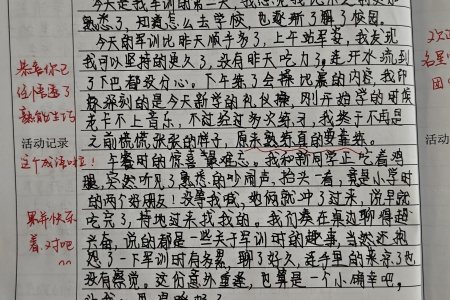 今天是我军训的第二天，我感觉我比昨天更加
熟悉了，知道怎么去学校，也更新了解了校园。
今天的军训比昨天顺手多了，上午站军姿，我发现
我可以坚持的更久了，没有昨天吃力了，连汗水流到
了下巴都没分心。下午练了会操比赛的内容，我印
象深刻的是今天新学的礼仪操，刚开始学的时候
老卡不上音乐，不过经过多次练习，我终于不再是
之前慌慌张张的样子，原来熟练真的要靠练。
午餐时的惊喜最难忘。我和新同学正吃着鸡
腿，突然听见了熟悉的吵闹声，抬头一看，竟是小学时
的两个好朋友！没等我喊，她俩就冲了过来，说早就
吃完了，特地过来找我的。我们凑在桌边聊得超
兴奋，说的都是一些关于军训时的趣事，当然还抱
怨了一下军训时有多累，聊了好久，连手里的菜凉了也
没有察觉。这份意外重逢，也算是一个小确幸吧。
恭喜你已
经悟透了
熟能生巧
这个成语啦！
活动记录
累并快乐
着，对吧
^^
活动